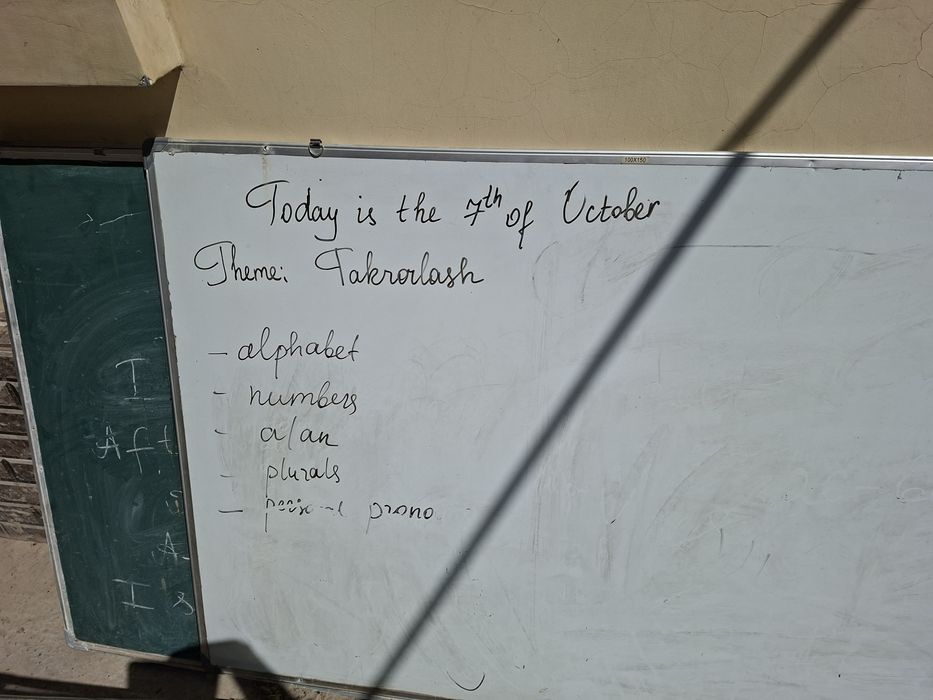 Today is the 7th of October
Theme: Takrorlash
- alphabet
- numbers
- a/an
- plurals
- personal prono
100X150